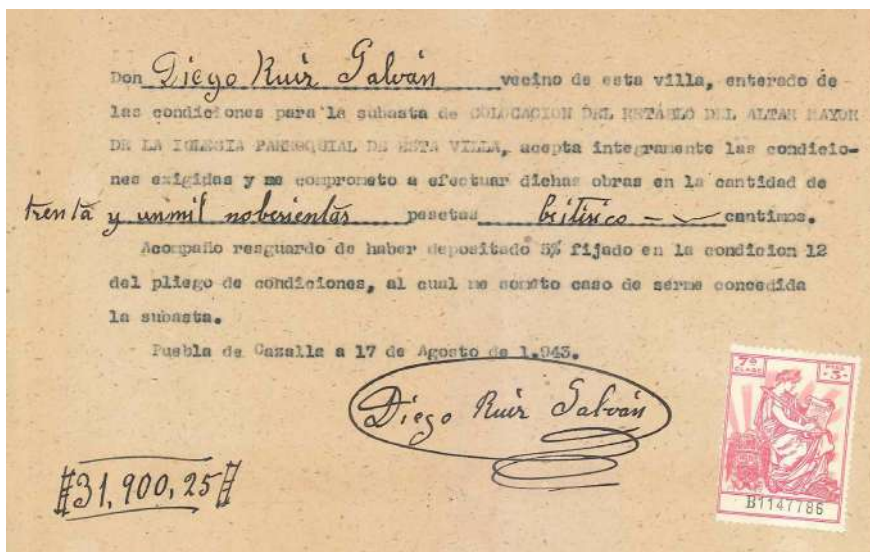 Don Diego Ruiz Galván vecino de esta villa, enterado de
las condiciones para la subasta de COLOCACION DEL RETABLO DEL ALTAR MAYOR
DE LA IGLESIA PARROQUIAL DE ESTA VILLA, acepta integramente las condicio-
nes exigidas y me comprometo a efectuar dichas obras en la cantidad de
trenta y unmil noberientas pesetas centimos.
Acompaño resguardo de haber depositado 5% fijado en la condicion 12
del pliego de condiciones, al cual me someto caso de serme concedida
la subasta.
Puebla de Cazalla a 17 de Agosto de 1.943.
Diego Ruiz Galván
#31,900,25#
7ª CLASE
3
B1147786